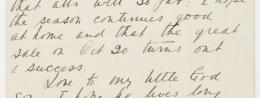 that all's well so far. I hope
the season continues good
at home and that the great
sale on Oct 20 turns out
a success.
Love to my little God
Son I hope he lives long